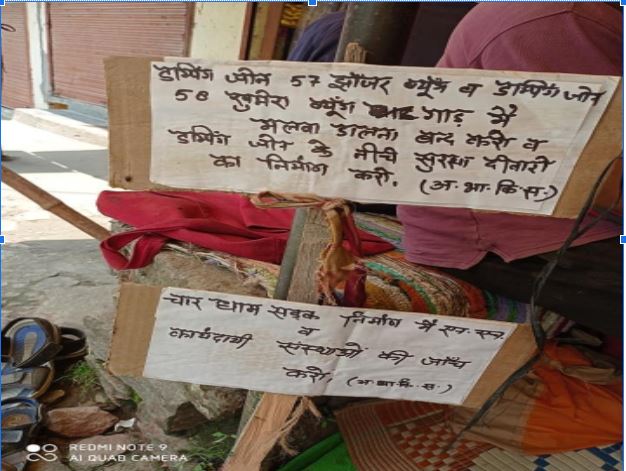 डम्पिंग जोन 57 झाँजर ब्यूँग व डम्पिंग जोन
58 खुमेरा ब्यूंग गाड़ में
मलवा डालना बन्द करो व
डम्पिंग जोन के नीचे सुरक्षा दीवारों
का निर्माण करो. (अ.भा.कि.स.)
चार धाम सड़क निर्माण में एन. एच.
व
कार्यदायी संस्थाओं की जाँच
करो. (अ.भा.कि.स.)
REDMI NOTE 9
AI QUAD CAMERA